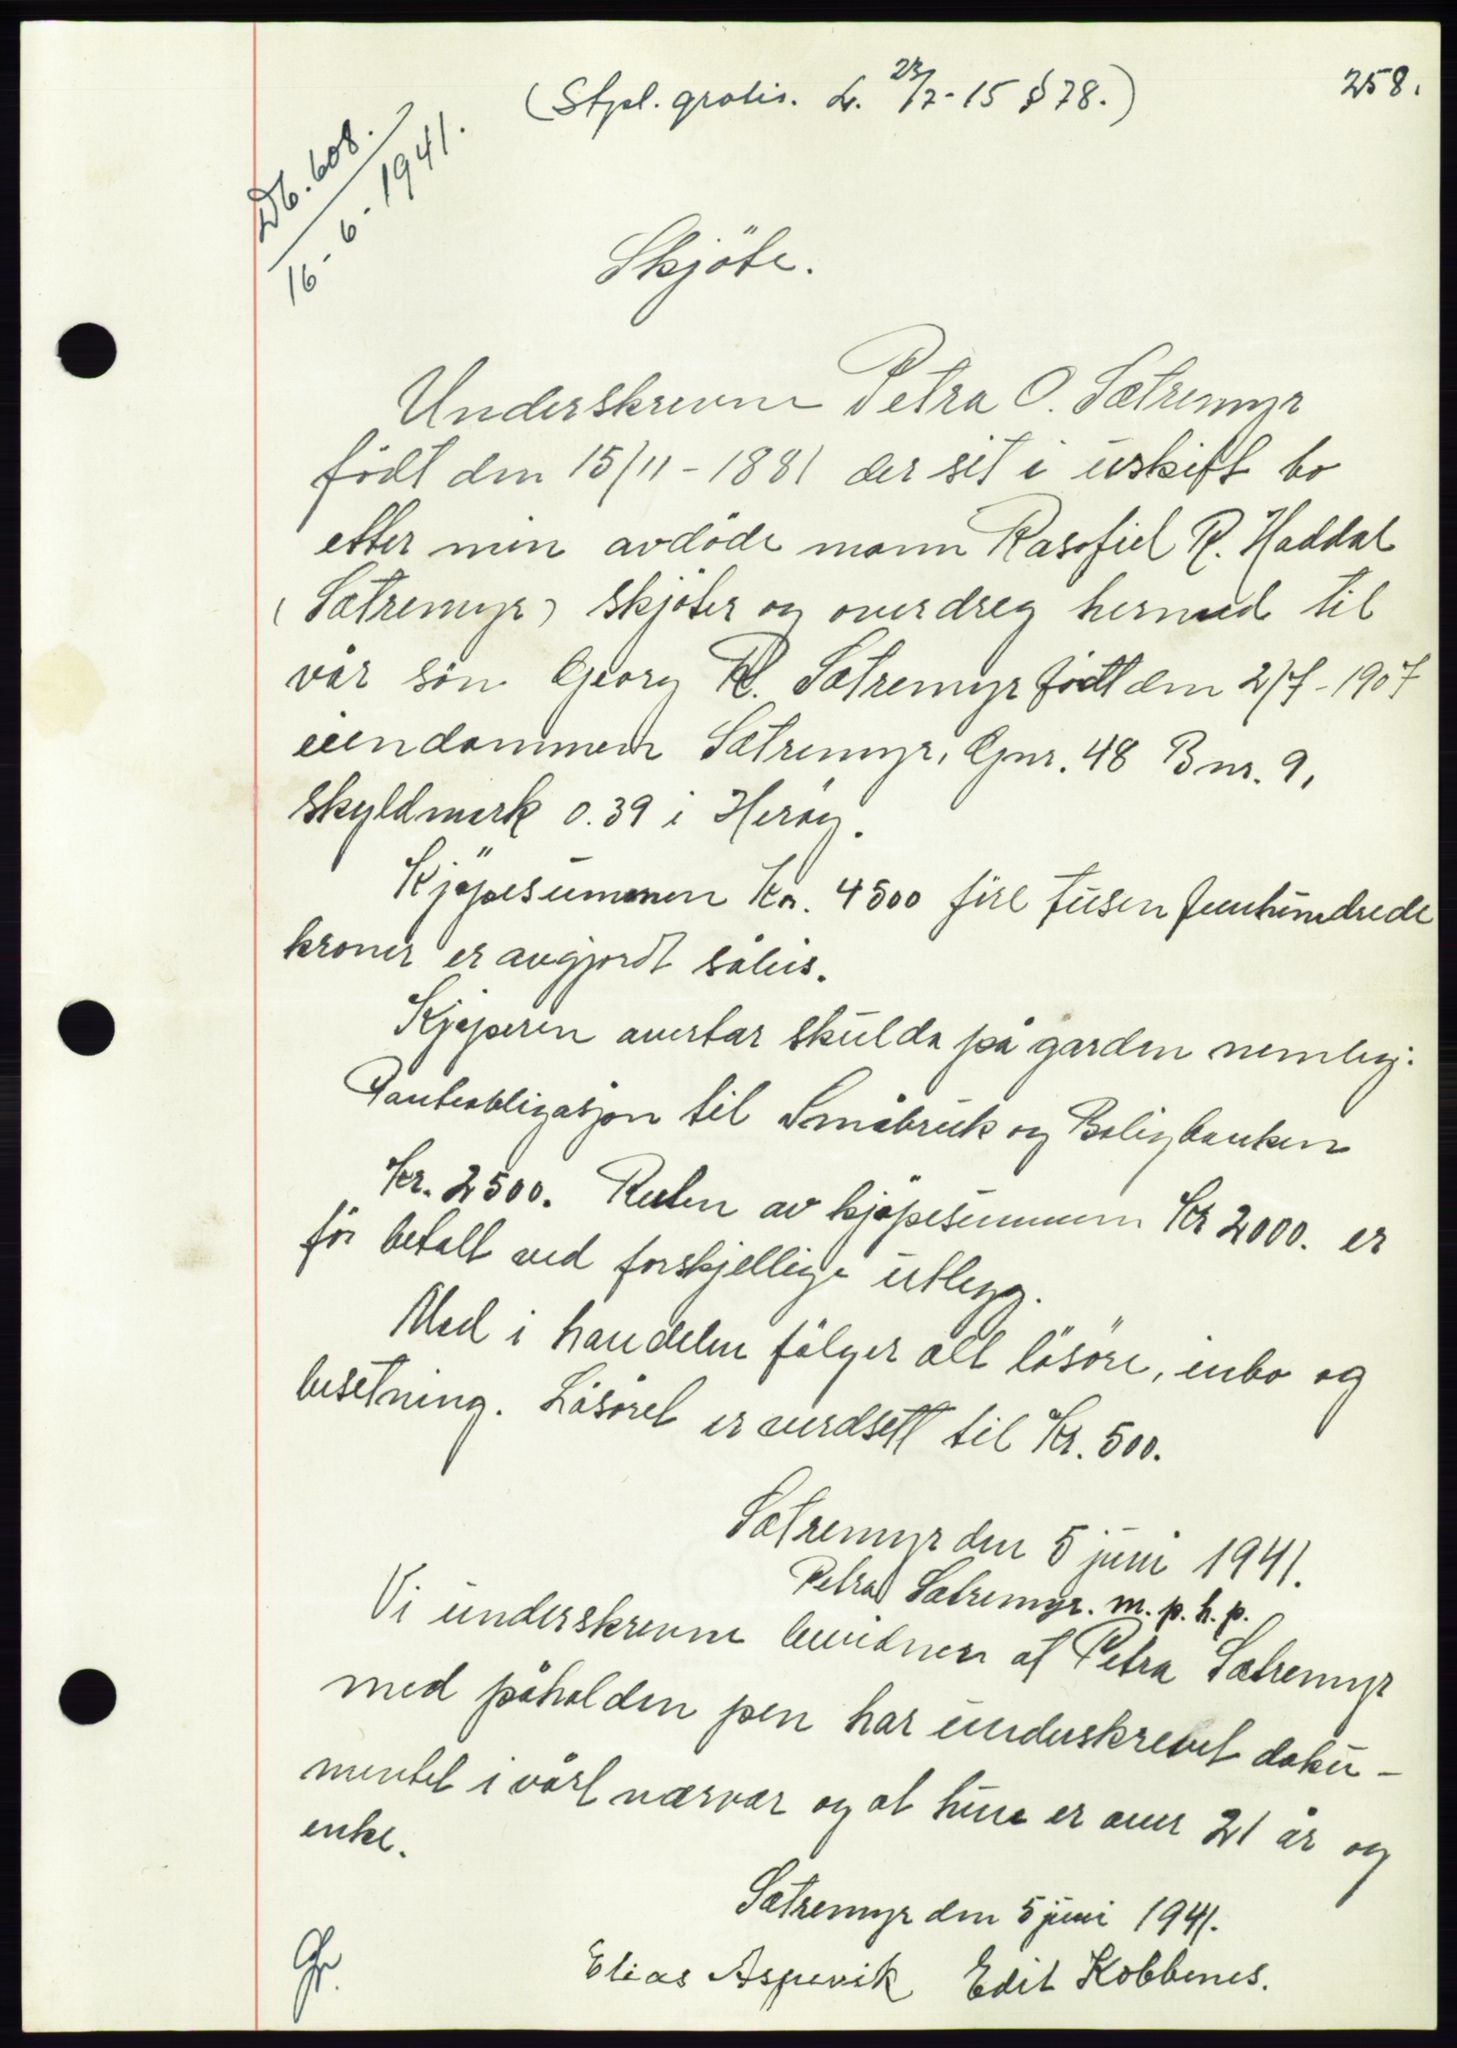 (Stpl. gratis. L. 23/7-15 § 78.)
258.
Db. 608.
16-6-1941.
Skjöte.
Underskrevne Petra O. Sætremyr
født den 15/11-1881 der sit i uskift bo
etter min avdöde mann R. Haddal
(Sætremyr) skjöter og overdreg hermed til
vår sön Georg R. Sætremyr födt den 2/7-1907
eiendommen Sætremyr, Gnr. 48 Bnr. 9,
skyldmark 0.39 i Heröy.
Kjöpesummen Kr. 4500 fire tusen femhundrede
kroner er avgjordt såleis.
Kjöperen overtar skulda på garden nemleg:
Panteobligasjon til Småbruk og Boligbanken
Kr. 2500. Resten av kjöpesummen Kr 2000. er
för betalt ved forskjellige utlegg.
Med i handelen fölger alt lösöre, inbo og
besetning. Lösöret er verdsett til Kr. 500.
Sætremyr den 5 juni 1941.
Petra Sætremyr. m. p. h. p.
Vi underskrevne bevidner at Petra Sætremyr
med påholden pen har underskrevet doku-
mentet i vårt nærvær og at hun er over 21 år og
enke.
Sætremyr den 5 juni 1941.
Elias Aspevik Edit Kobbenes.